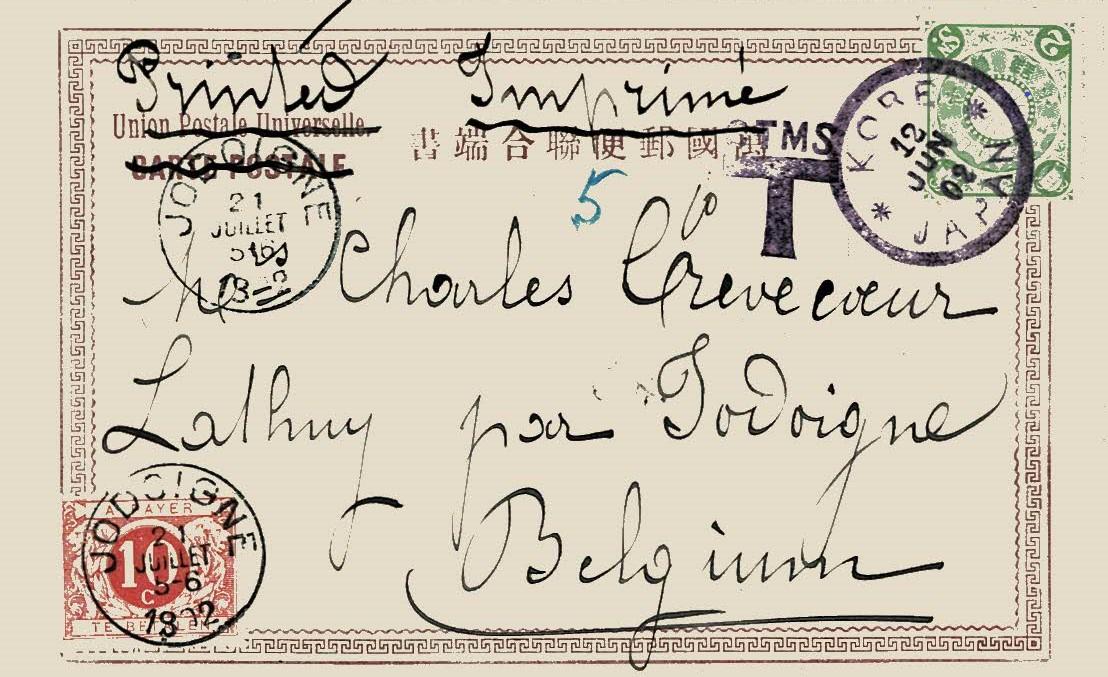 Printed Imprimé
Union Postale Universelle.
萬國郵便聯合端書
CARTE POSTALE
CTMS
T
KOBE
12
JUN
02
JAPAN
JODOIGNE
21
JUILLET
5-6
5
Mr Charles Crevecœur
Lathuy par Jodoigne
Belgium
A PAYER
10
C
TE BETALEN
JODOIGNE
21
JUILLET
5-6
1902